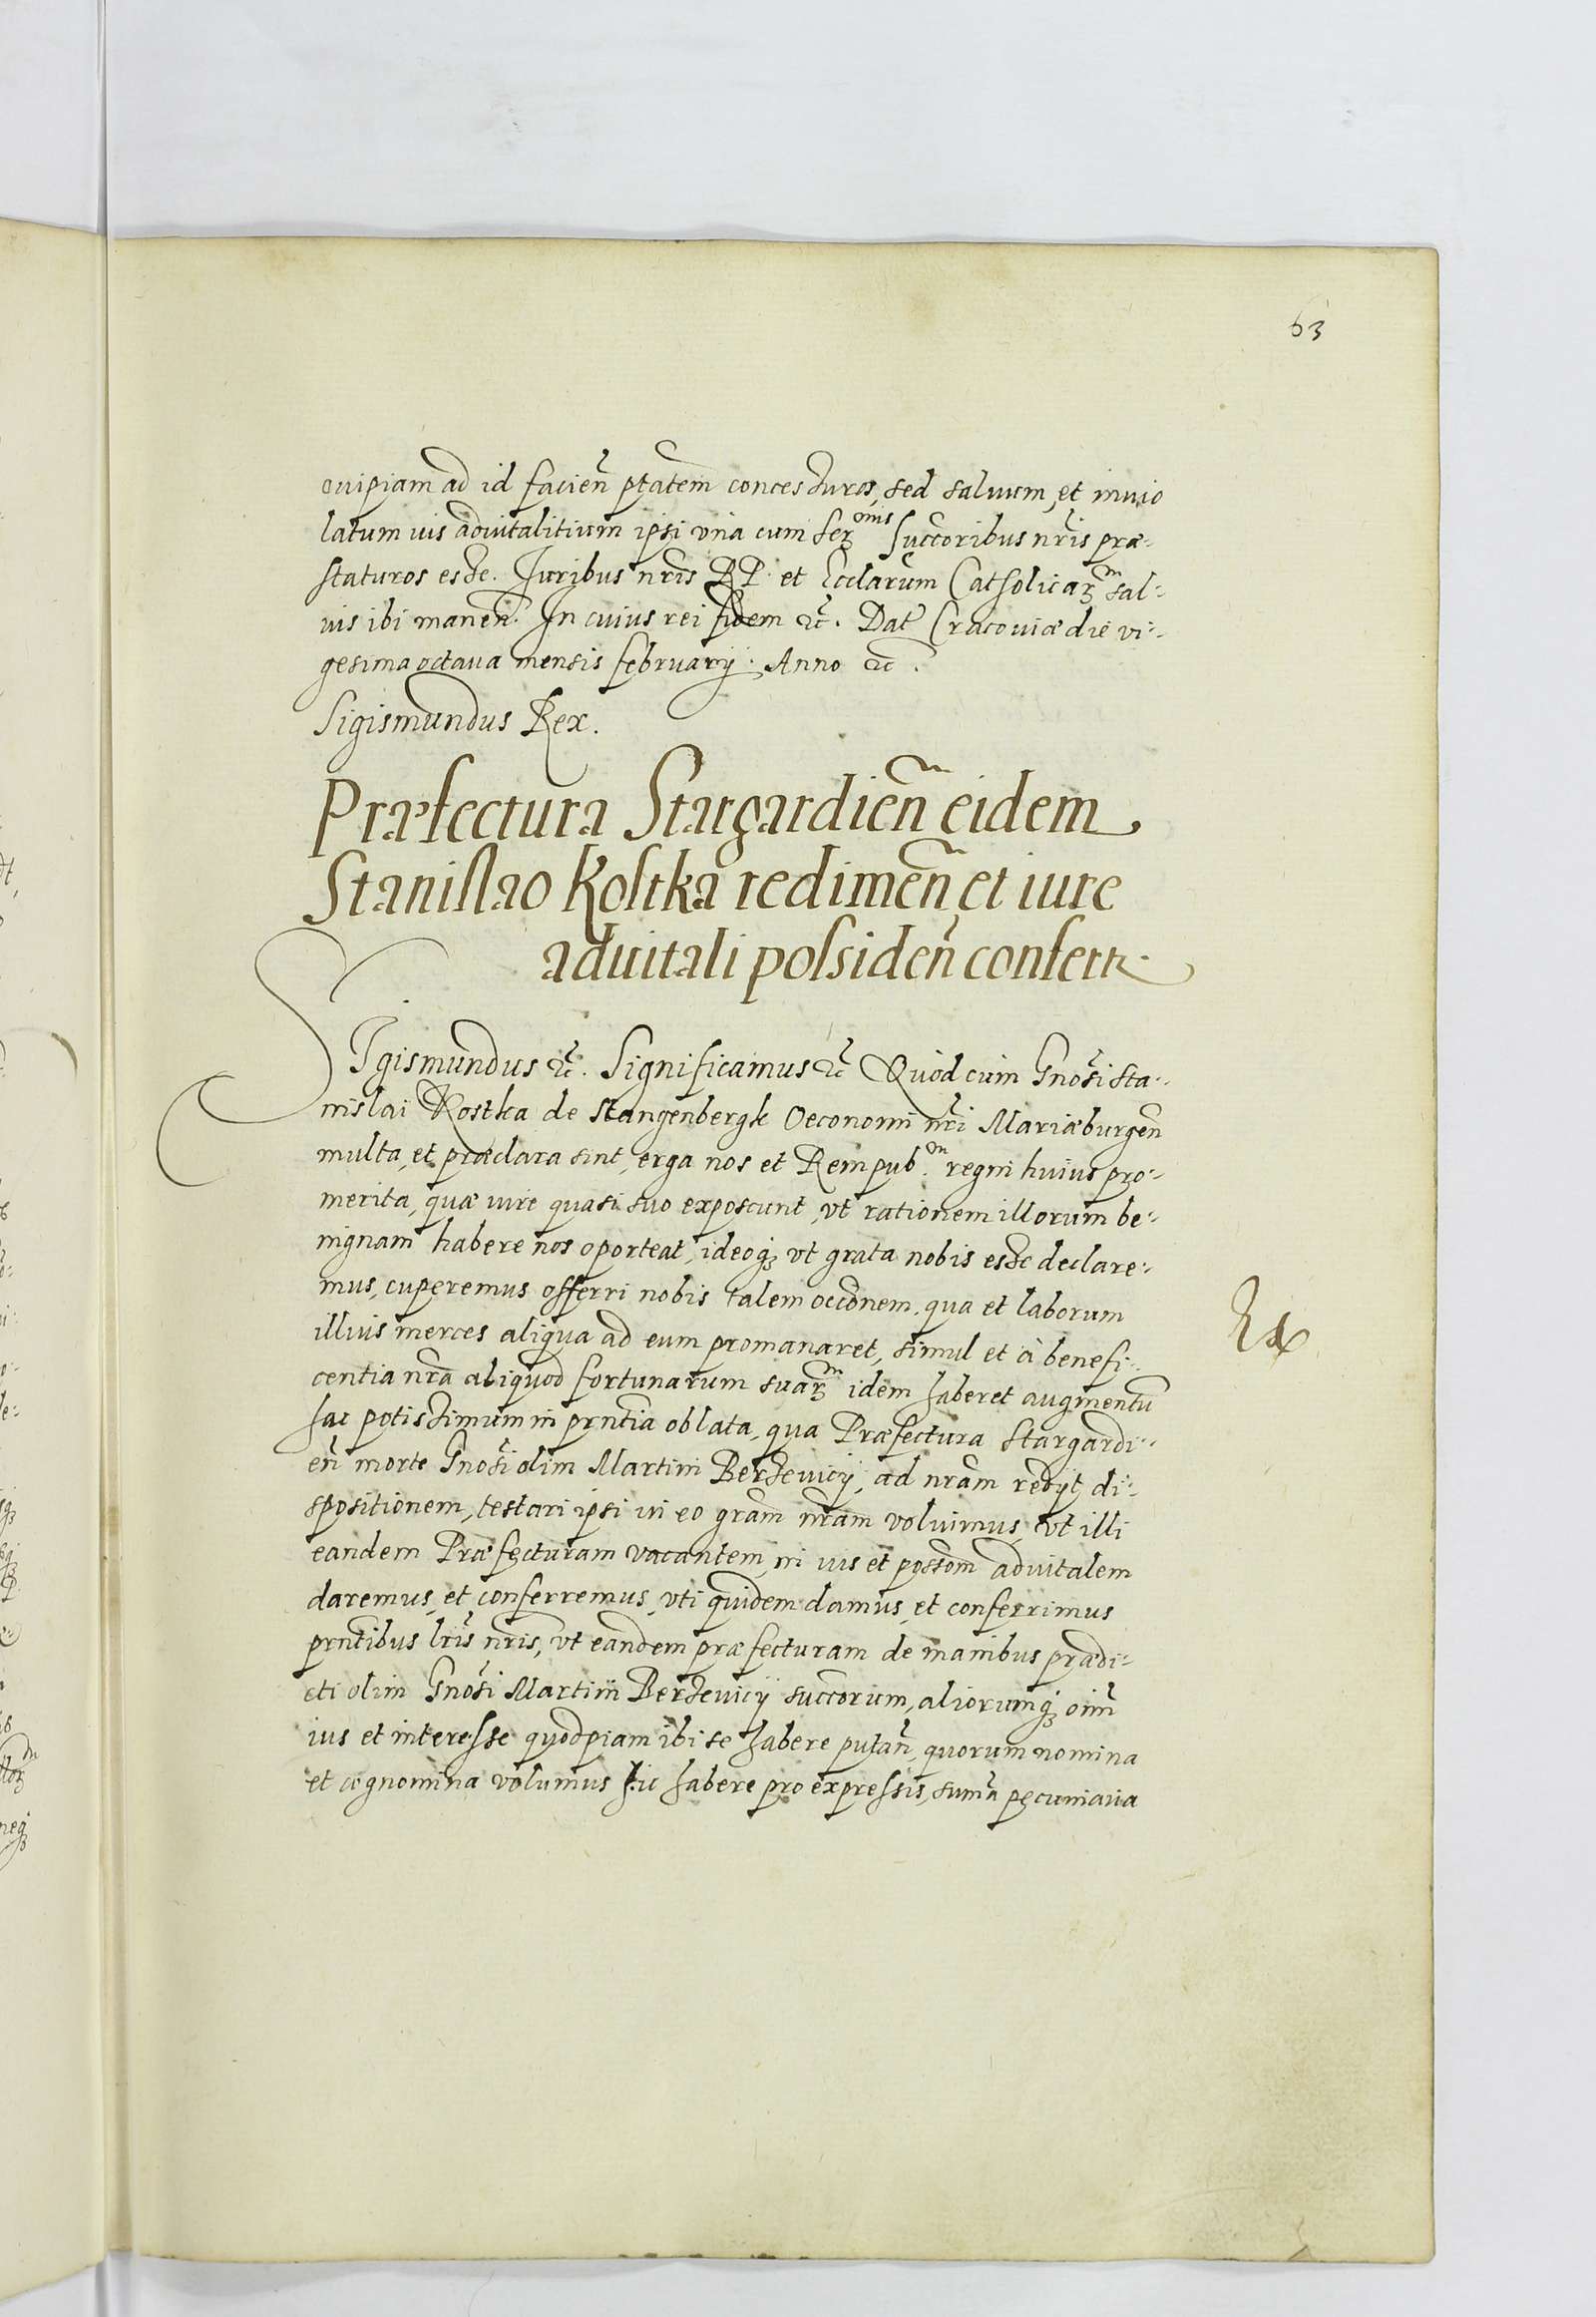 63
cuipiam ad id facieñ ptatem concessuros, sed saluum, et inuio
latum ius aduitalitium ipsi vna cum Ser^mis Succoribus nris præ-
staturos esse. Juribus nris RP. et Ecclarum Catholicarꝫ sal-
uis ibi maneñ. In cuius rei fidem etc̃. Dat Cracouiæ die vi-
gesima octaua mensis february. Anno etc.
Sigismundus Rex.
Præfectura Stargardieñ eidem
Stanislao Kostka redimeñ et iure
aduitali possideñ confert.
SIgismundus etc̃. Significamus etc̃ Quod cum Gnosi Sta-
nislai Kostka de Stangenbergk Oeconomi nri Mariæburgeñ
multa, et præclara sint, erga nos et Rempub^m. regni huius pro-
merita, quæ iure quasi suo exposcunt, vt rationem illorum be-
nignam habere nos oporteat, ideoqꝫ vt grata nobis esse declare-
mus, cuperemus offerri nobis talem occonem, qua et laborum
illius merces aliqua ad eum promanaret, simul et à benefi-
centia nra aliquod fortunarum suarꝫ idem haberet augmentũ
hac potissimum in prntia oblata, qua Præfectura Stargardi-
eñ morte Gnosi olim Martini Berzeuicy, ad nram redyt di-
spositionem, testari ipsi in eo gram nram voluimus, vt illi
eandem Præfecturam vacantem, in ius et possom aduitalem
daremus, et conferremus, vti quidem damus, et conferrimus
prntibus lris nris, vt eandem præfecturam de manibus prædi-
cti olim Gnosi Martini Berzeuicy succorum, aliorumqꝫ oim̃
ius et interesse quodpiam ibi se habere putañ, quorum nomina
et cognomina volumus hic habere pro expressis, sum̃a pecuniaria